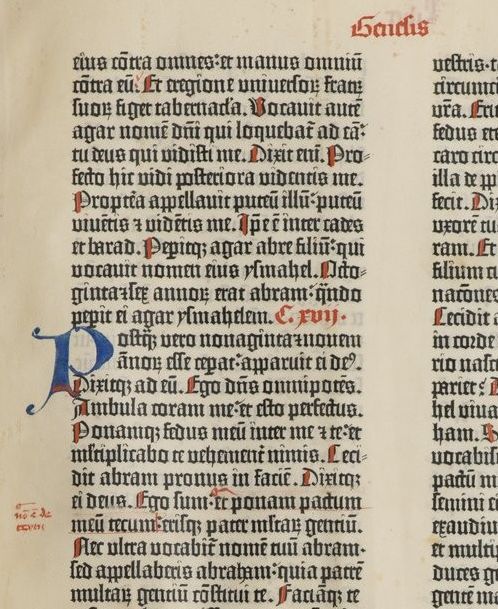 Genesis
eius cōtra omnes: et manus omniū
cōtra eū. Et eregione universoꝝ fratrū
suoꝝ figet tabernacła. Vocavit autē
agar nomē dñi qui loquebať ad eā:
tu deus qui vidisti me. Dixit eni. Pro-
fecto hic vidi posteriora videntis me.
Proptēa appellavit puteū illū: puteū
viuētis ⁊ vidētis me. Ip̄e ē inter cades
et barad. Pepitqꝫ agar abre filiū: qui
vocauit nomen eius ysmahel. Octo-
ginta⁊sex annoꝝ erat abram: qn̄do
pepit ei agar ysmahelem. C. xvij.
Postqꝫ vero nonaginta⁊nouem
ānoꝝ esse ceperat: apparuit ei deꝰ.
Dixitqꝫ ad eū. Ego dn̄s omnipotēs.
Ambula coram me: et esto perfectus.
Ponamqꝫ fedus meū inter me ⁊ te: et
mltiplicabo te vehementer nimis. Ceci-
dit abram pronus in faciē. Dixitqꝫ
ei deus. Ego sum: et ponam pactum
meū tecum: erisqꝫ pater mltaꝝ gentiū.
Nec vltra vocabit̄ nomē tuū abram:
sed appellaberis abraham: quia patrē
multaꝝ gentiū cōstitui te. Faciāqꝫ te
circumci
vr̄a.
fedus
caro circ
illa de
fecit. Di
vxorē tu
ram. Et
filium
naciones
Cecidit
in corde
rio nasc
pariet:
hel viua
ham.
vocabis
pactū m
semini
exaudiu
et multi
duces
gentē